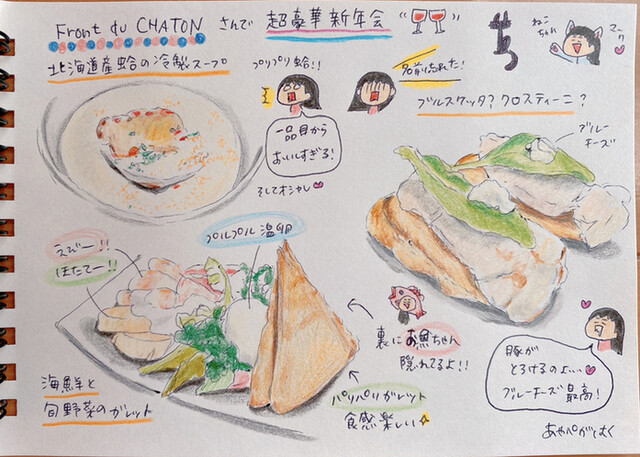 Front du CHATON さんで 超豪華新年会
ねこちゃん
マーク
北海道産蛤の冷製スープ
プリプリ蛤!!
名前忘れた!
ブルスケッタ?クロスティーニ?
ブルーチーズ
一品目から
おいしすぎる!
そしてオシャレ
えびー!!
ほたてー!!
プルプル温卵
裏にお魚ちゃん
隠れてるよ!!
パリパリガレット
食感楽しい
海鮮と
旬野菜のガレット
豚が
とろけるのよ...
ブルーチーズ最高!